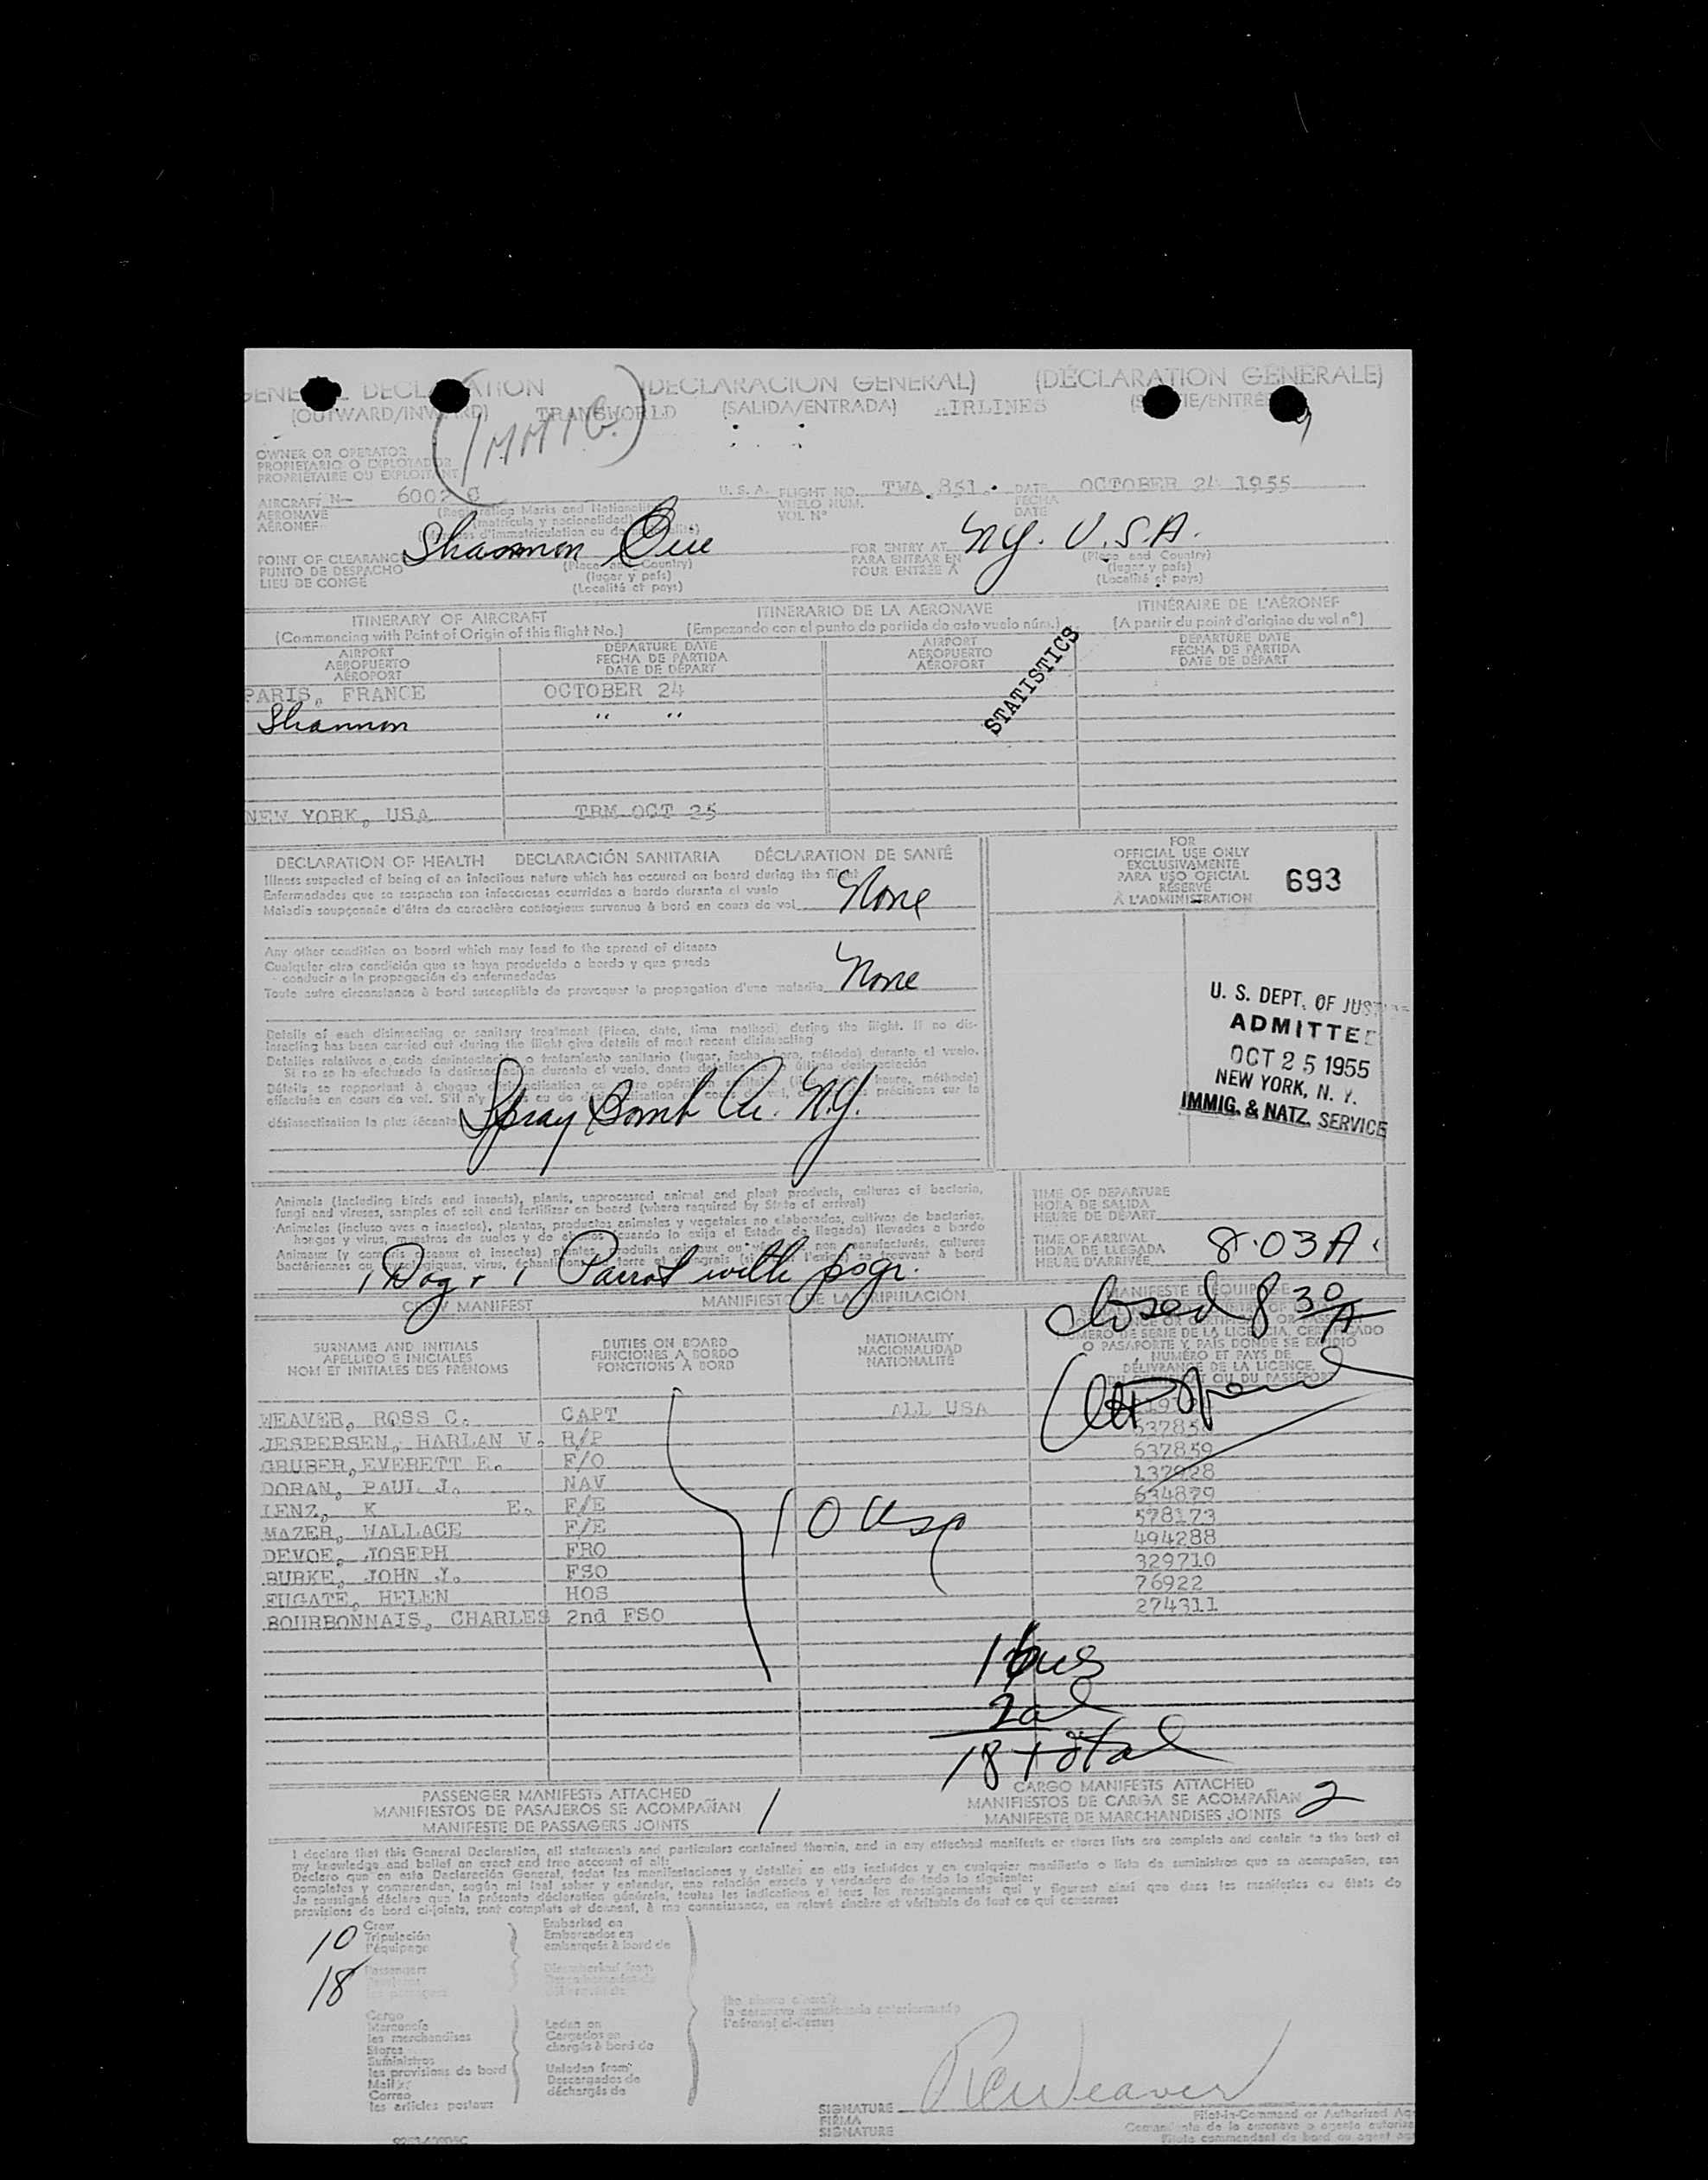 GENERAL DECLARATION (DECLARACION GENERAL) (DÉCLARATION GENERALE)
(OUTWARD/INWARD) TRANSWORLD (SALIDA/ENTRADA) AIRLINES
OWNER OR OPERATOR
PROPIETARIO O EXPLOTADOR
PROPRIÉTAIRE OU EXPLOITANT
AIRCRAFT N— 6002 C U. S. A. FLIGHT NO. TWA 851 DATE OCTOBER 24 1955
AERONAVE VUELO NUM. FECHA
AÉRONEF VOL Nº DATE
(Registration Marks and Nationality)
(matricula y nacionalidad)
POINT OF CLEARANCE Shannon Eire FOR ENTRY AT NY. U.S.A.
PUNTO DE DESPACHO (Place and Country) PARA ENTRAR EN (Place and Country)
LIEU DE CONGÉ (lugar y país) POUR ENTRÉE À (lugar y país)
(Localité et pays) (Localité et pays)
ITINERARY OF AIRCRAFT ITINERARIO DE LA AERONAVE ITINÉRAIRE DE L'AÉRONEF
(Commencing with Point of Origin of this flight No.) (Empezando con el punto de partida de este vuelo núm.) (A partir du point d'origine du vol nº)
AIRPORT DEPARTURE DATE AIRPORT DEPARTURE DATE
AEROPUERTO FECHA DE PARTIDA AEROPUERTO FECHA DE PARTIDA
AÉROPORT DATE DE DÉPART AÉROPORT DATE DE DÉPART
STATISTICS
PARIS, FRANCE OCTOBER 24
Shannon " "
NEW YORK, USA TRM OCT 25
DECLARATION OF HEALTH DECLARACIÓN SANITARIA DÉCLARATION DE SANTÉ
Illness suspected of being of an infectious nature which has occured on board during the flight
Enfermedades que se sospecha son infecciosas ocurridas a bordo durante el vuelo
Maladie soupçonnée d'être de caractère contagieux survenue à bord en cours de vol None
FOR
OFFICIAL USE ONLY
EXCLUSIVAMENTE
PARA USO OFICIAL
RÉSERVÉ
À L'ADMINISTRATION
693
Any other condition on board which may lead to the spread of disease
Cualquier otra condición que se haya producido a bordo y que puede
conducir a la propagación de enfermedades
Toute autre circonstance à bord susceptible de provoquer la propagation d'une maladie None
U. S. DEPT. OF JUSTICE
ADMITTED
OCT 25 1955
NEW YORK, N. Y.
IMMIG. & NATZ. SERVICE
Details of each disinsecting or sanitary treatment (Place, date, time method) during the flight. If no dis-
insecting has been carried out during the flight give details of most recent disinsecting
Detalles relativos a cada desinsectación o tratamiento sanitario (lugar, fecha, hora, método) durante el vuelo.
Si no se ha efectuado la desinsectación durante el vuelo, danse detalles de la última desinsectación
désinsectisation la plus récente Spray Bomb Ar. N.Y.
Animals (including birds and insects), plants, unprocessed animal and plant products, cultures of bacteria,
fungi and viruses, samples of soil and fertilizer on board (where required by State of arrival)
Animales (incluso aves e insectos), plantas, productos animales y vegetales no elaborados, cultivos de bacterias,
hongos y virus, muestras de suelos y de abonos (cuando lo exija el Estado de llegada) llevados a bordo
1 Dog + 1 Parrot with psgr.
TIME OF DEPARTURE
HORA DE SALIDA
HEURE DE DÉPART
TIME OF ARRIVAL
HORA DE LLEGADA 8:03 A.
HEURE D'ARRIVÉE
closed 8 30/A
CREW MANIFEST MANIFIESTO DE LA TRIPULACIÓN MANIFESTE D'ÉQUIPAGE
SURNAME AND INITIALS DUTIES ON BOARD NATIONALITY
APELLIDO E INICIALES FUNCIONES A BORDO NACIONALIDAD
NOM ET INITIALES DES PRÉNOMS FONCTIONS À BORD NATIONALITÉ
NÚMERO DE SERIE DE LA LICENCIA, CERTIFICADO
O PASAPORTE Y PAÍS DONDE SE EXPIDIÓ
NUMÉRO ET PAYS DE
DÉLIVRANCE DE LA LICENCE,
DU CERTIFICAT OU DU PASSEPORT
WEAVER, ROSS C. CAPT ALL USA
JESPERSEN, HARLAN V. R/P
GRUBER, EVERETT E. F/O 637859
DORAN, PAUL J. NAV 137928
LENZ, K E. F/E 634879
MAZER, WALLACE F/E 578173
DEVOE, JOSEPH FRO 494288
BURKE, JOHN Y. FSO 329710
FUGATE, HELEN HOS 76922
BOURBONNAIS, CHARLES 2nd FSO 274311
10 USC
16 us
2 al
18 total
PASSENGER MANIFESTS ATTACHED CARGO MANIFESTS ATTACHED
MANIFIESTOS DE PASAJEROS SE ACOMPAÑAN 1 MANIFIESTOS DE CARGA SE ACOMPAÑAN 2
MANIFESTE DE PASSAGERS JOINTS MANIFESTE DE MARCHANDISES JOINTS
I declare that this General Declaration, all statements and particulars contained therein, and in any attached manifests or stores lists are complete and contain to the best of
my knowledge and belief an exact and true account of all:
Declaro que en esta Declaración General, todas las manifestaciones y detalles en ella incluidos y en cualquier manifiesto o lista de suministros que se acompañen, son
completos y comprenden, según mi leal saber y entender, una relación exacta y verdadera de todo lo siguiente:
Je soussigné déclare que la présente déclaration générale, toutes les indications et tous les renseignements qui y figurent ainsi que dans les manifestes ou états de
provisions de bord ci-joints, sont complets et donnent, à ma connaissance, un relevé sincère et véritable de tout ce qui concerne:
10 Crew Embarked on
Tripulación Embarcados en
l'équipage embarqués à bord de
18 Passengers Disembarked from
Cargo
Mercancía Laden on
les marchandises Cargados en
Stores chargés à bord de
Suministros
les provisions de bord Unladen from
Mail Descargados de
Correo déchargés de
les articles postaux
the above aircraft
la aeronave mencionada anteriormente
l'aéronef ci-dessus
SIGNATURE RCWeaver
FIRMA
SIGNATURE
Pilot-in-Command or Authorized
Comandante de la aeronave o agente
Pilote commandant de bord ou agent